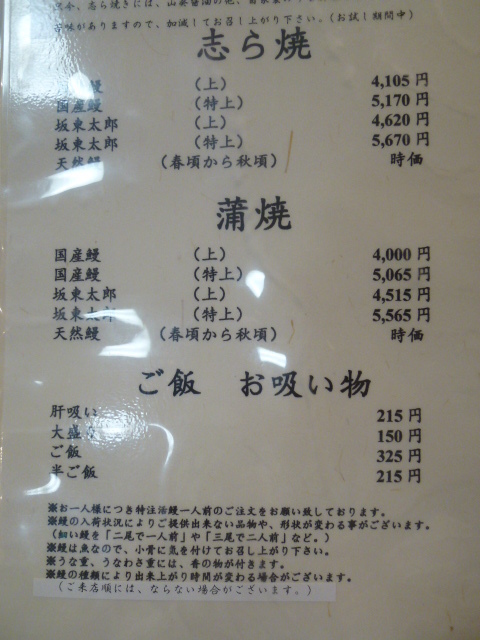 志ら焼には、山葵醤油の他、
苦味がありますので、加減してお召し上がり下さい。(お試し期間中)
志ら焼
鰻 (上) 4,105 円
国産鰻 (特上) 5,170 円
坂東太郎 (上) 4,620 円
坂東太郎 (特上) 5,670 円
天然鰻 (春頃から秋頃) 時価
蒲焼
国産鰻 (上) 4,000 円
国産鰻 (特上) 5,065 円
坂東太郎 (上) 4,515 円
坂東太郎 (特上) 5,565 円
天然鰻 (春頃から秋頃) 時価
ご飯 お吸い物
肝吸い 215 円
大盛り 150 円
ご飯 325 円
半ご飯 215 円
※お一人様につき特注活鰻一人前のご注文をお願い致しております。
※鰻の入荷状況によりご提供出来ない品物や、形状が変わる事がございます。
(細い鰻を「二尾で一人前」や「三尾で二人前」など。)
※鰻は魚なので、小骨に気を付けてお召し上がり下さい。
※うな重、うなわさ重には、香の物が付きます。
※鰻の種類により出来上がり時間が変わる場合がございます。
(ご来店順には、ならない場合がございます。)